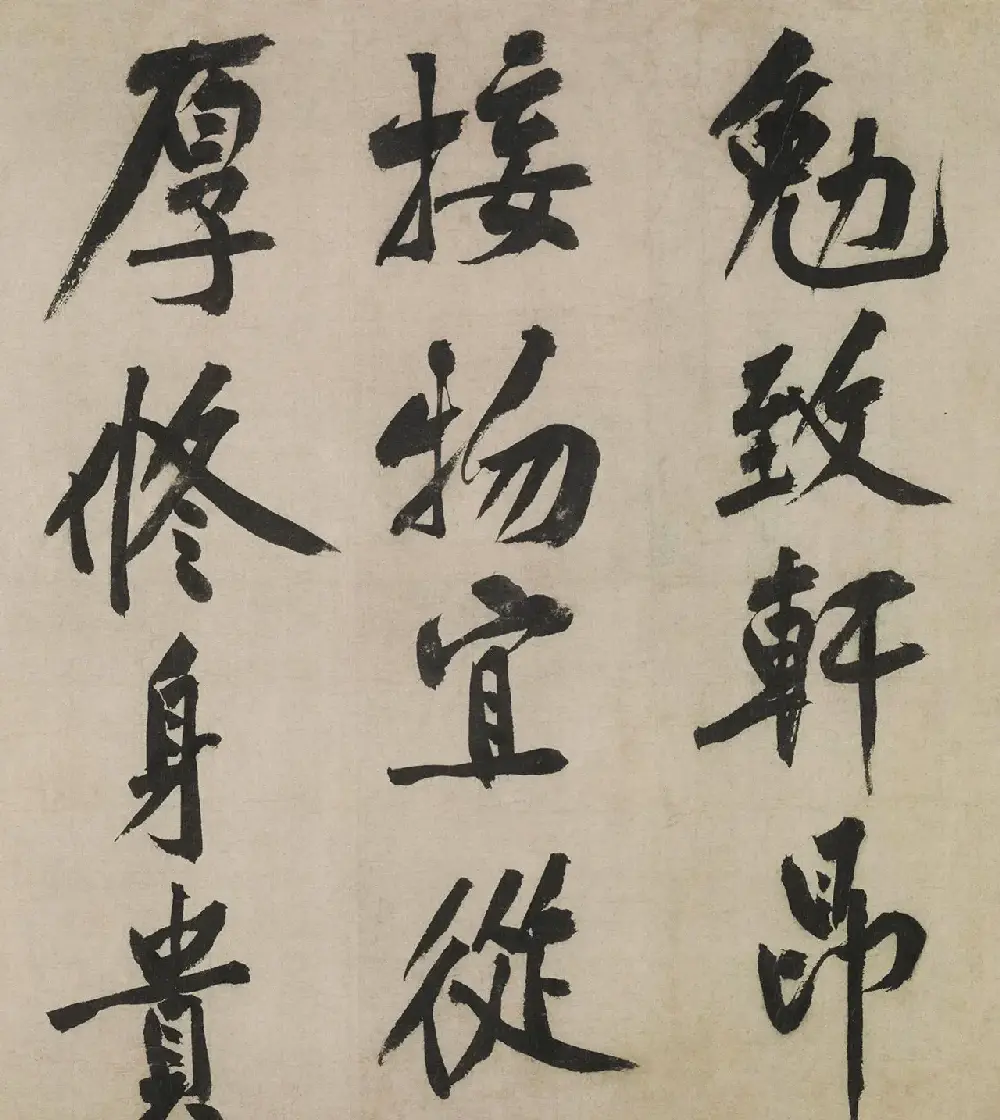 勉致軒昂
接物宜從
厚脩身貴